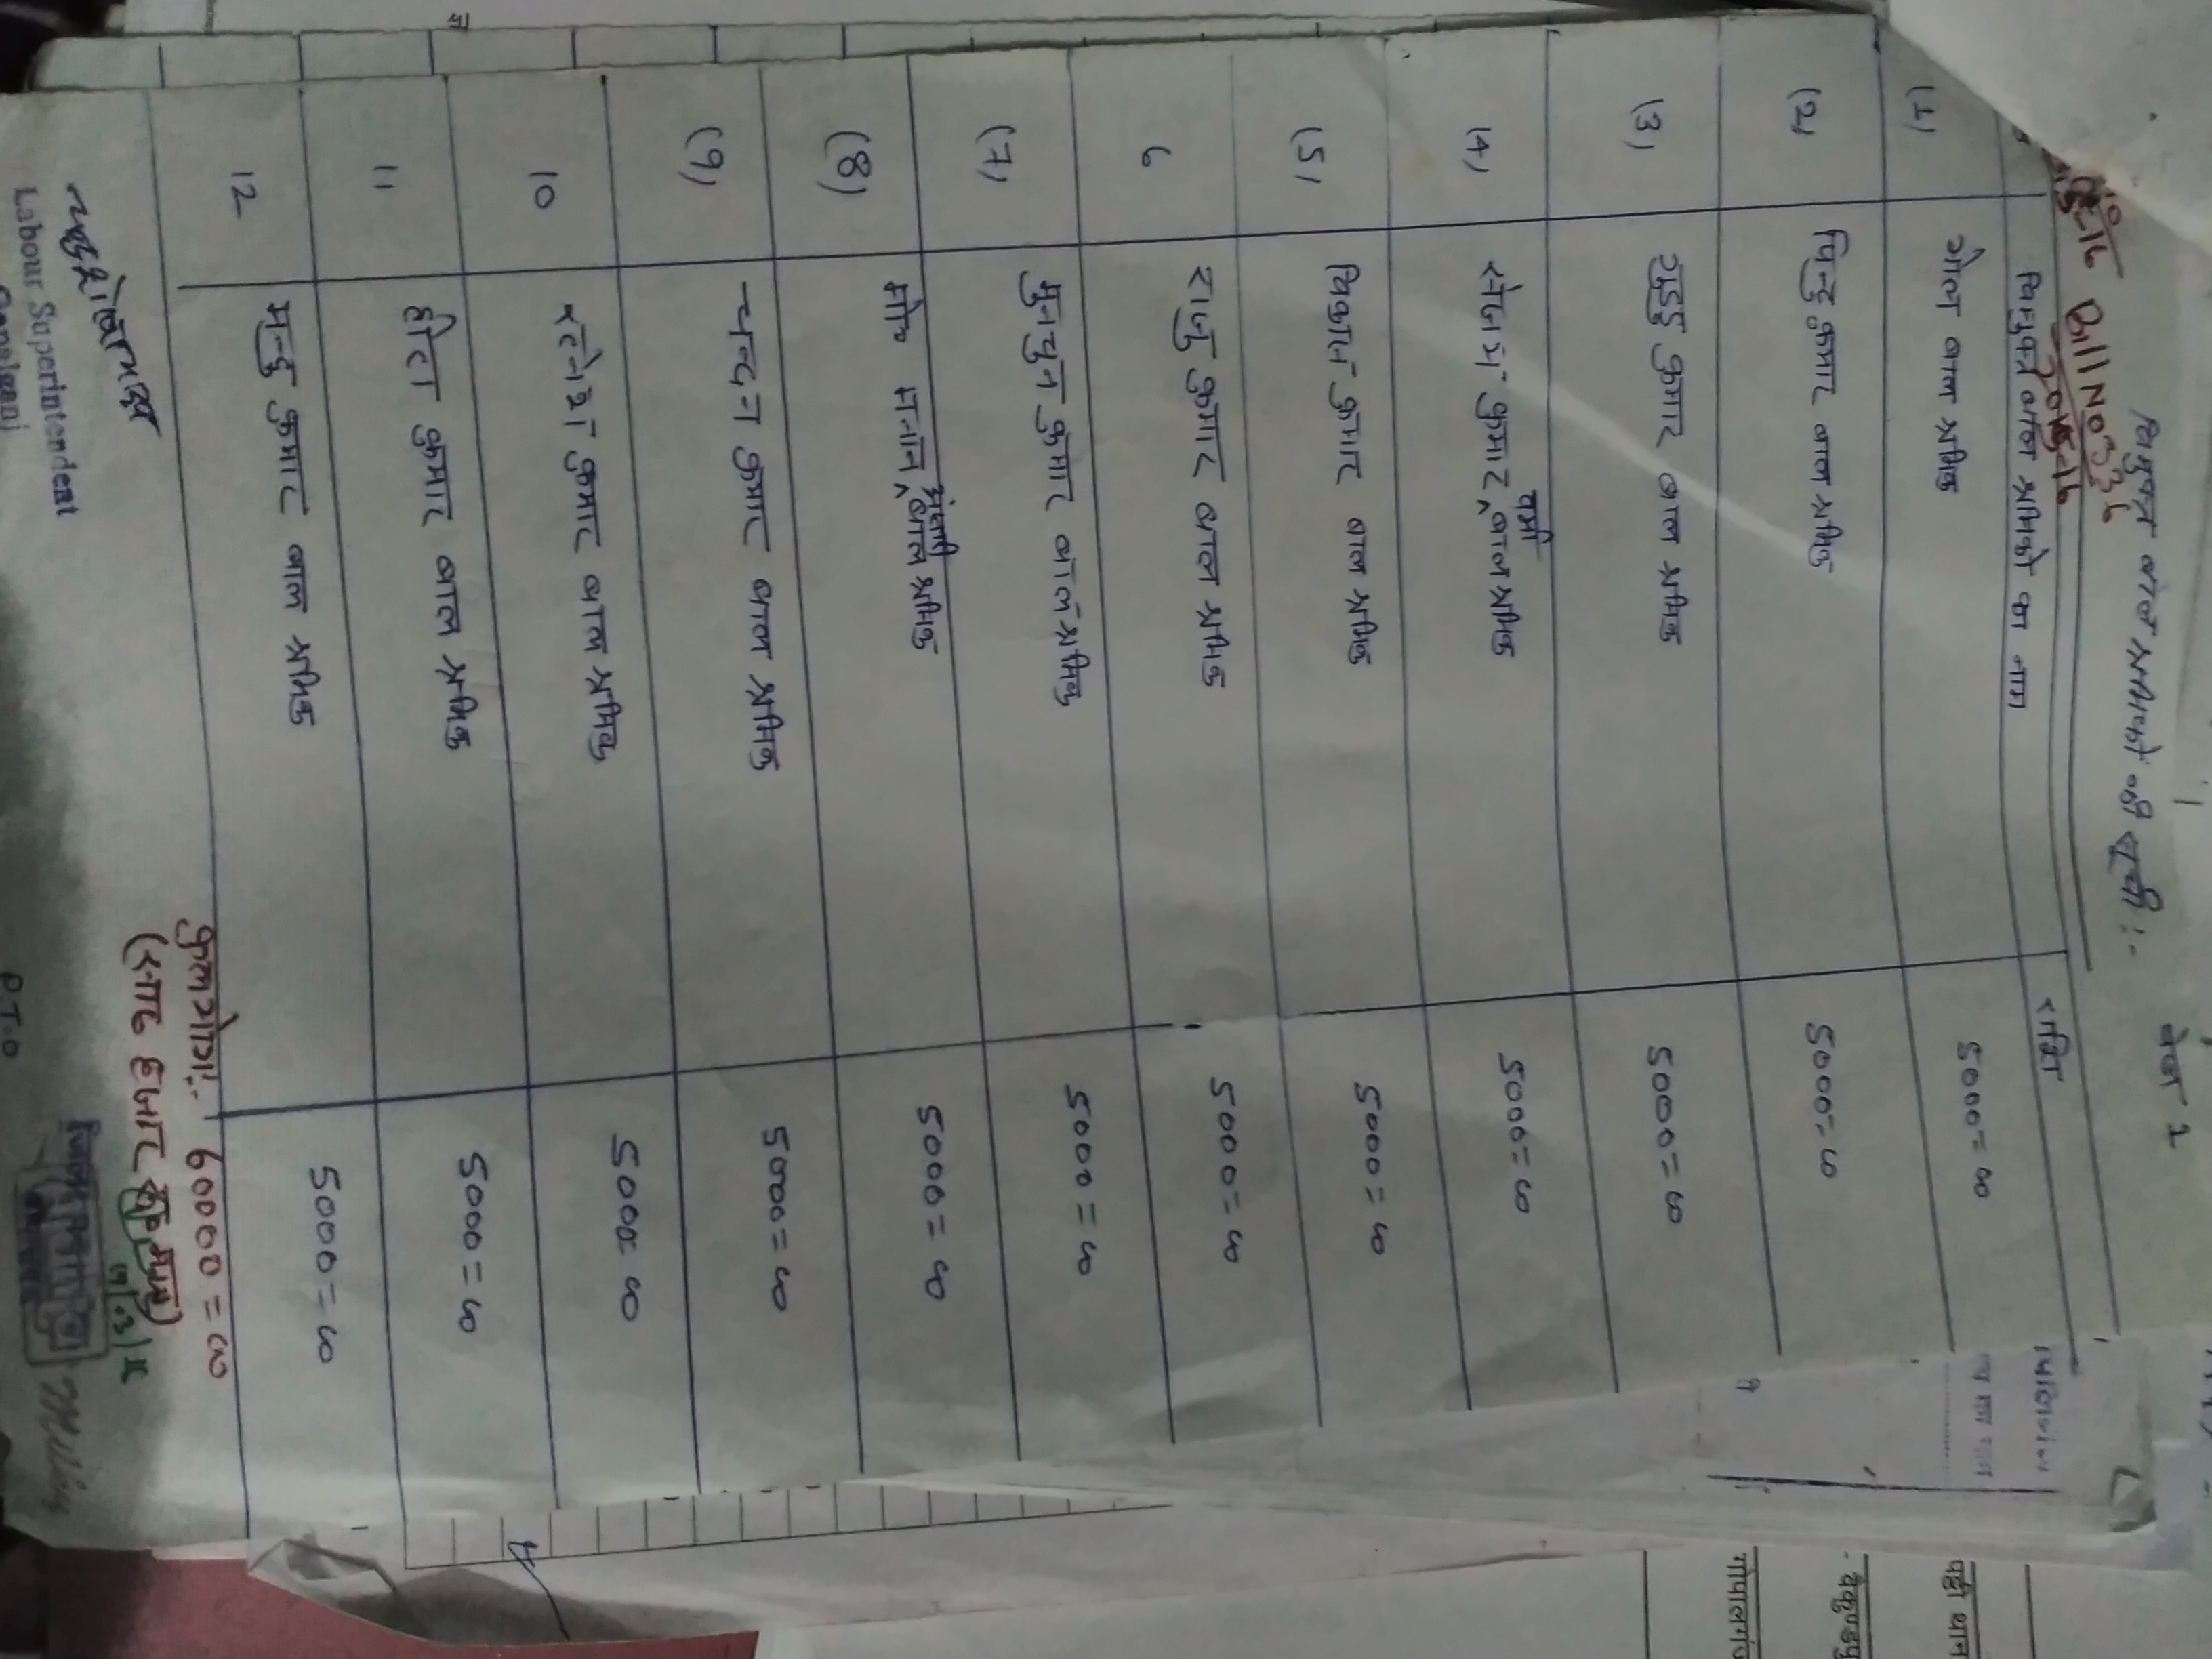 पेज 1
विमुक्त बाल श्रमिको की सूची:-
Bill No 336
2015-16
विमुक्त बाल श्रमिको का नाम राशि
(1) गोलू बाल श्रमिक 5000=00
(2) पिन्टु कुमार बाल श्रमिक 5000=00
(3) गुड्डु कुमार बाल श्रमिक 5000=00
(4) कुमार वर्मा बाल श्रमिक 5000=00
(5) विकास कुमार बाल श्रमिक 5000=00
6 राजु कुमार बाल श्रमिक 5000=00
(7) मुनचुन कुमार बाल श्रमिक 5000=00
(8) मो० अंसारी बाल श्रमिक 5000=00
(9) चन्दन कुमार बाल श्रमिक 5000=00
10 रत्नेश कुमार बाल श्रमिक 5000=00
11 छोटा कुमार बाल श्रमिक 5000=00
12 मन्टु कुमार बाल श्रमिक 5000=00
कुल योग:- 60000=00
(साठ हजार रू० मात्र)
Labour Superintendent
Gopalganj
P.T.O
गोपालगंज